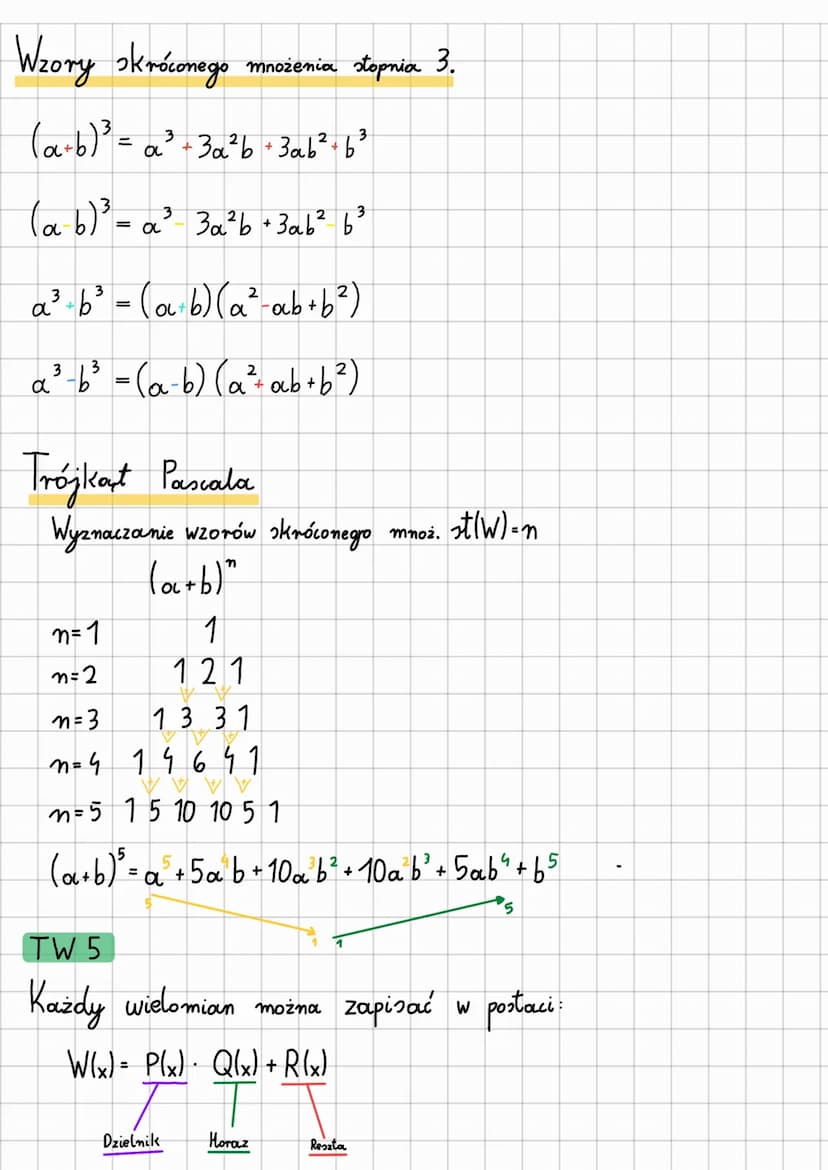 Wzory skróconego mnożenia stopnia 3.
(a+b)³ = a³ + 3a²b + 3ab² + b³
(a-b)³ = a³ - 3a²b + 3ab² - b³
a³+b³ = (a+b)(a²-ab+b²)
a³-b³ = (a-b)(a²+ab+b²)
Trójkąt Pascala
Wyznaczanie wzorów skróconego mnoż. st(W)=n
(a+b)ⁿ
n=1 1
n=2 1 2 1
n=3 1 3 3 1
n=4 1 4 6 4 1
n=5 1 5 10 10 5 1
(a+b)⁵ = a⁵ + 5a⁴b + 10a³b² + 10a²b³ + 5ab⁴ + b⁵
5 1 1 5
TW 5
Każdy wielomian można zapisać w postaci:
W(x) = P(x) · Q(x) + R(x)
Dzielnik Iloraz Reszta